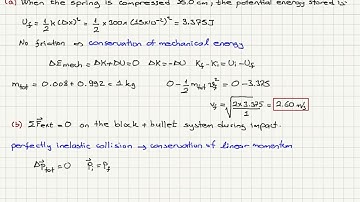 (a) When the spring is compressed 15.0 cm, the potential energy stored is:
U_f = 1/2 k (Δx)² = 1/2 × 300 × (15×10⁻²)² = 3.375 J
No friction → conservation of mechanical energy
ΔE_mech = ΔK + ΔU = 0 ΔK = -ΔU K_f - K_i = U_i - U_f
m_tot = 0.008 + 0.992 = 1 kg 0 - 1/2 m_tot v_f² = 0 - 3.375
v_f = √(2×3.375/1) = 2.60 m/s
(b) ΣF⃗_ext = 0 on the block + bullet system during impact.
perfectly inelastic collision → conservation of linear momentum
Δp⃗_tot = 0 p⃗_i = p⃗_f